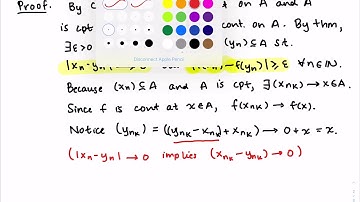 Proof. By C on A and A
is cpt cont. on A. By thm,
∃ε>0 (yn)⊆A st.
|xn-yn| -f(yn)|≥ε ∀n∈ℕ.
Disconnect Apple Pencil
Because (xn)⊆A and A is cpt, ∃(xnk)→x∈A.
Since f is cont at x∈A, f(xnk)→f(x).
Notice (ynk) = ((ynk-xnk)+xnk)→0+x=x.
(|xn-yn|→0 implies (xnk-ynk)→0)